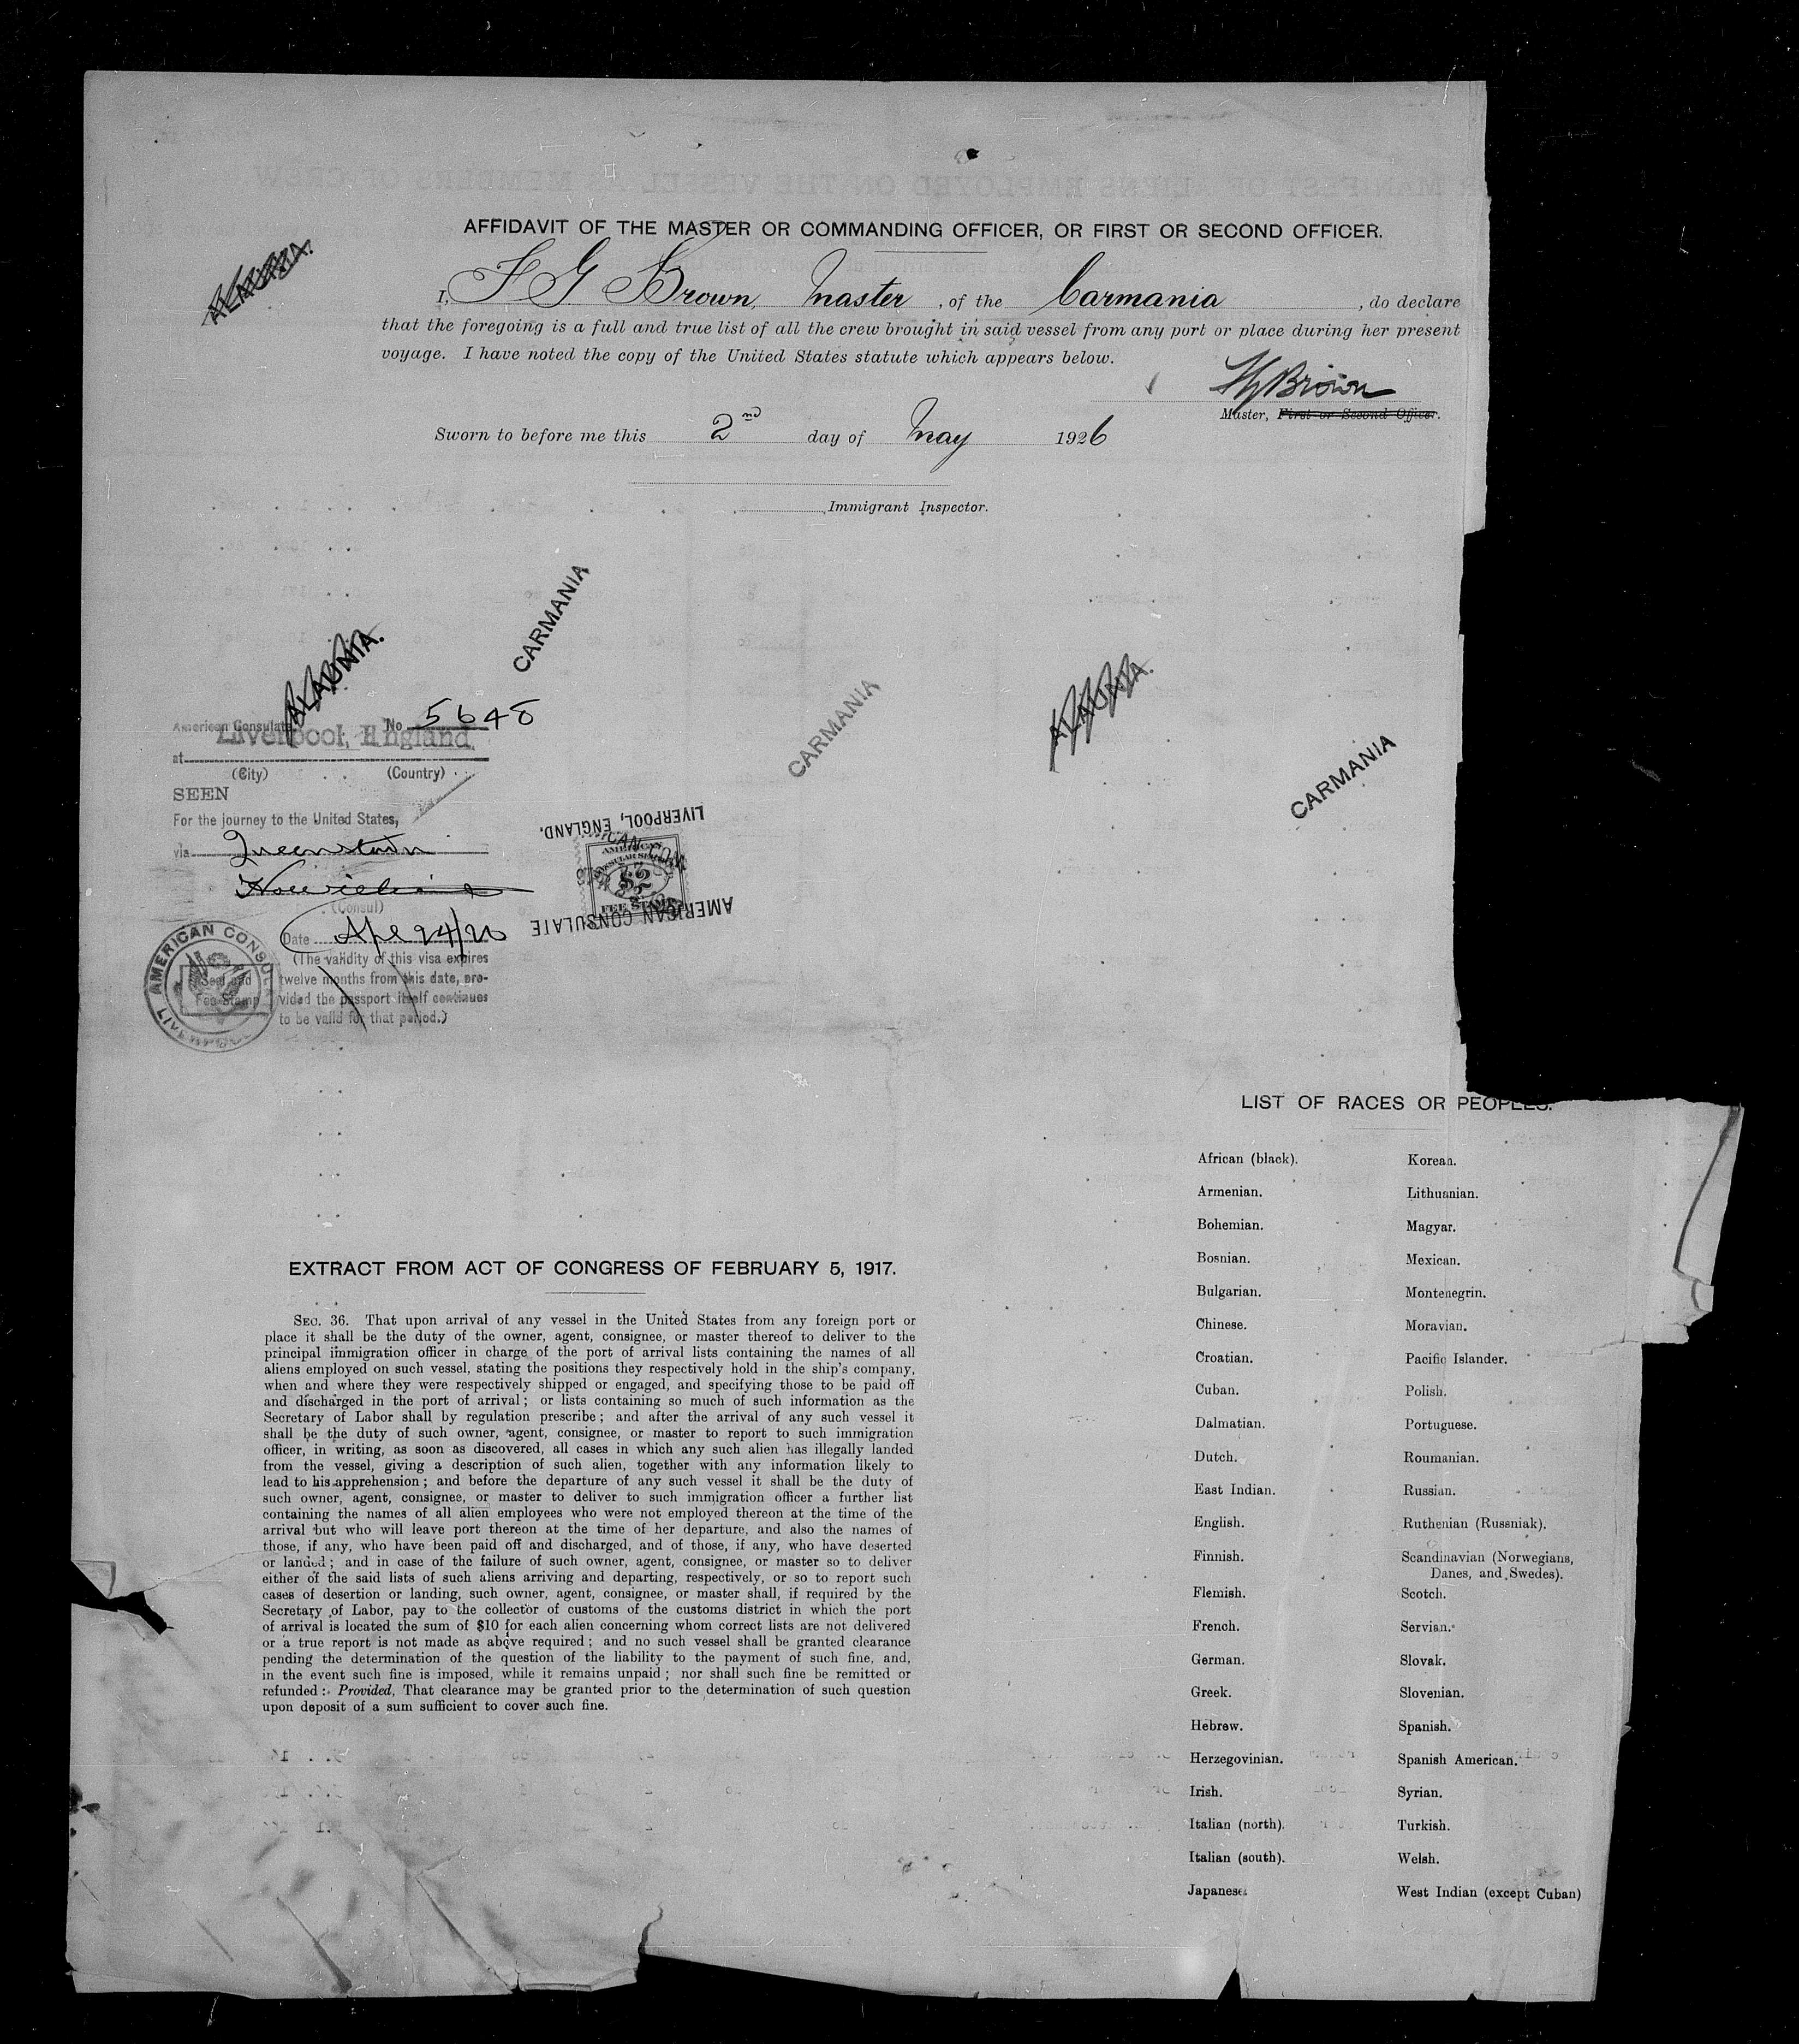 AFFIDAVIT OF THE MASTER OR COMMANDING OFFICER, OR FIRST OR SECOND OFFICER.
ALAUNIA.
I, F G Brown, Master, of the Carmania, do declare
that the foregoing is a full and true list of all the crew brought in said vessel from any port or place during her present
voyage. I have noted the copy of the United States statute which appears below.
FG Brown
Master, First or Second Officer.
Sworn to before me this 2nd day of May 1926
Immigrant Inspector.
CARMANIA
ALAUNIA.
CARMANIA
ALAUNIA.
CARMANIA
American Consulate No. 5648
Liverpool, England.
at
(City) (Country)
SEEN
For the journey to the United States,
via Queenstown
(Consul)
Date Apl 24/26
(The validity of this visa expires
twelve months from this date, pro-
vided the passport itself continues
to be valid for that period.)
AMERICAN CONSUL
LIVERPOOL
Seal and
Fee Stamp
LIVERPOOL, ENGLAND.
AMERICAN
CONSULAR SERVICE
$2
FEE STAMP
AMERICAN CONSULATE
LIST OF RACES OR PEOPLES.
African (black). Korean.
Armenian. Lithuanian.
Bohemian. Magyar.
Bosnian. Mexican.
Bulgarian. Montenegrin.
Chinese. Moravian.
Croatian. Pacific Islander.
Cuban. Polish.
Dalmatian. Portuguese.
Dutch. Roumanian.
East Indian. Russian.
English. Ruthenian (Russniak).
Finnish. Scandinavian (Norwegians,
Danes, and Swedes).
Flemish. Scotch.
French. Servian.
German. Slovak.
Greek. Slovenian.
Hebrew. Spanish.
Herzegovinian. Spanish American.
Irish. Syrian.
Italian (north). Turkish.
Italian (south). Welsh.
Japanese. West Indian (except Cuban)
EXTRACT FROM ACT OF CONGRESS OF FEBRUARY 5, 1917.
SEC. 36. That upon arrival of any vessel in the United States from any foreign port or
place it shall be the duty of the owner, agent, consignee, or master thereof to deliver to the
principal immigration officer in charge of the port of arrival lists containing the names of all
aliens employed on such vessel, stating the positions they respectively hold in the ship's company,
when and where they were respectively shipped or engaged, and specifying those to be paid off
and discharged in the port of arrival; or lists containing so much of such information as the
Secretary of Labor shall by regulation prescribe; and after the arrival of any such vessel it
shall be the duty of such owner, agent, consignee, or master to report to such immigration
officer, in writing, as soon as discovered, all cases in which any such alien has illegally landed
from the vessel, giving a description of such alien, together with any information likely to
lead to his apprehension; and before the departure of any such vessel it shall be the duty of
such owner, agent, consignee, or master to deliver to such immigration officer a further list
containing the names of all alien employees who were not employed thereon at the time of the
arrival but who will leave port thereon at the time of her departure, and also the names of
those, if any, who have been paid off and discharged, and of those, if any, who have deserted
or landed; and in case of the failure of such owner, agent, consignee, or master so to deliver
either of the said lists of such aliens arriving and departing, respectively, or so to report such
cases of desertion or landing, such owner, agent, consignee, or master shall, if required by the
Secretary of Labor, pay to the collector of customs of the customs district in which the port
of arrival is located the sum of $10 for each alien concerning whom correct lists are not delivered
or a true report is not made as above required; and no such vessel shall be granted clearance
pending the determination of the question of the liability to the payment of such fine, and,
in the event such fine is imposed, while it remains unpaid; nor shall such fine be remitted or
refunded: Provided, That clearance may be granted prior to the determination of such question
upon deposit of a sum sufficient to cover such fine.